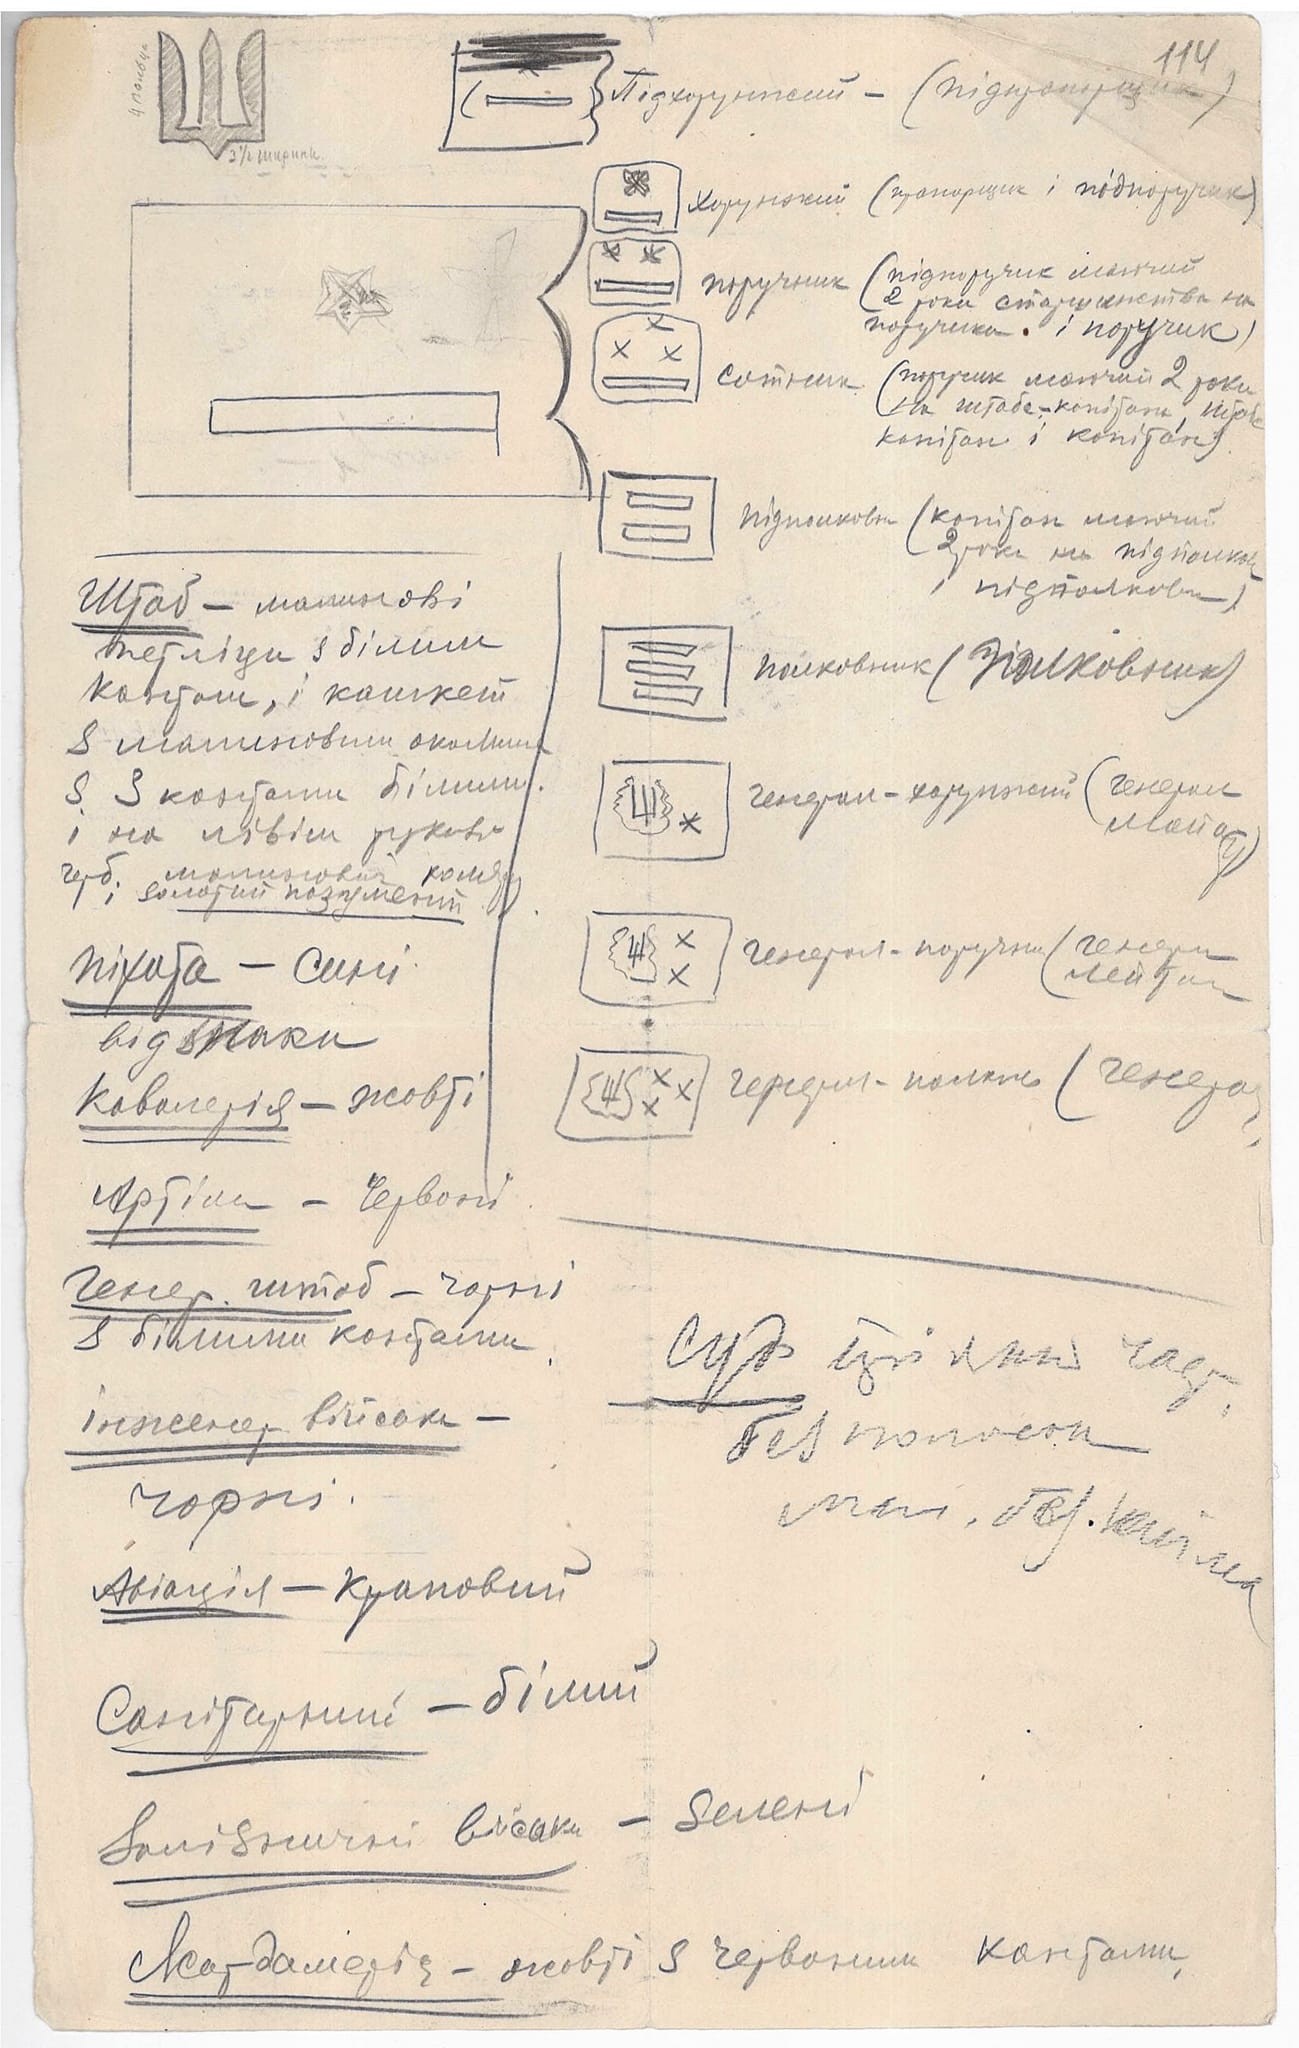 114
3½ ширини.
Підхорунжий – (підпрапорщик)
Хорунжий (прапорщик і підпоручик)
поручник (підпоручик маючий
2 роки старшинства на
поручика. і поручик)
сотник (поручик маючий 2 роки
на штабс-капітана, штабс
капітан і капітан)
підполковн (капітан маючий
2 роки на підполков
і підполковн)
полковник (полковник)
генерал-хорунжий (генерал
майор)
генерал-поручн (генерал
лейтан
генерал-полковн (генерал,
Штаб – малинові
петліци з білим
кантом, і кашкет
з малиновим околиш
з 3 кантами білими.
і на лівім рукові
герб. малиновий
і золотий позумент).
піхота – сині
відзнаки
Кавалерія – жовті
Артіл – Червоні
Генер. штаб – чорні
з білими кантами.
інженер війська –
чорні.
Авіація – краповий
Санітарний – білий
Залізничні війська – зелені
Жандамерія – жовті з червоними кантами,
Суд
без